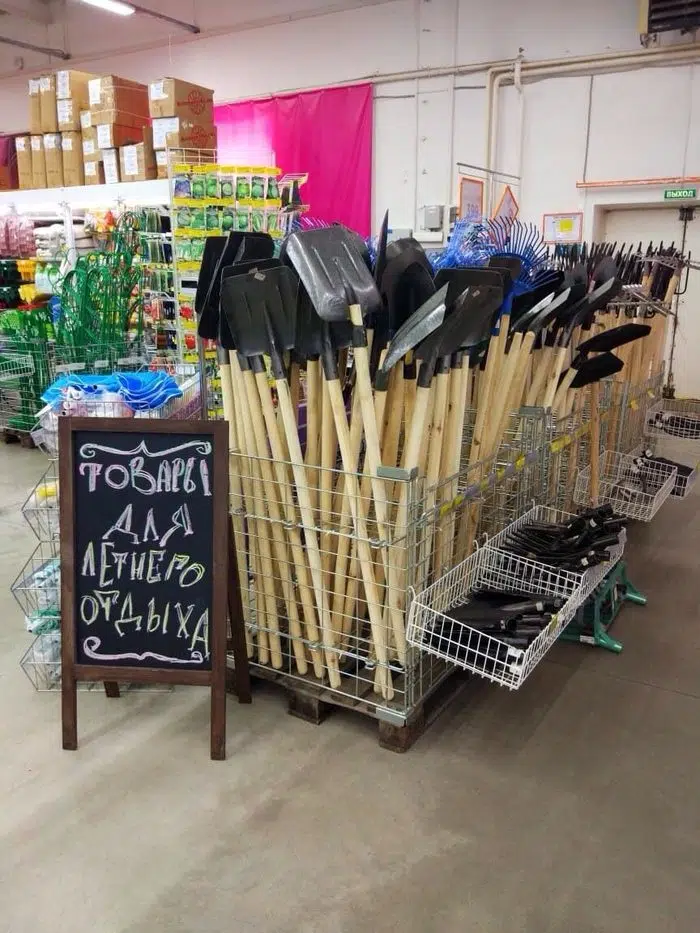 ВЫХОД
ТОВАРЫ
ДЛЯ
ЛЕТНЕГО
ОТДЫХА